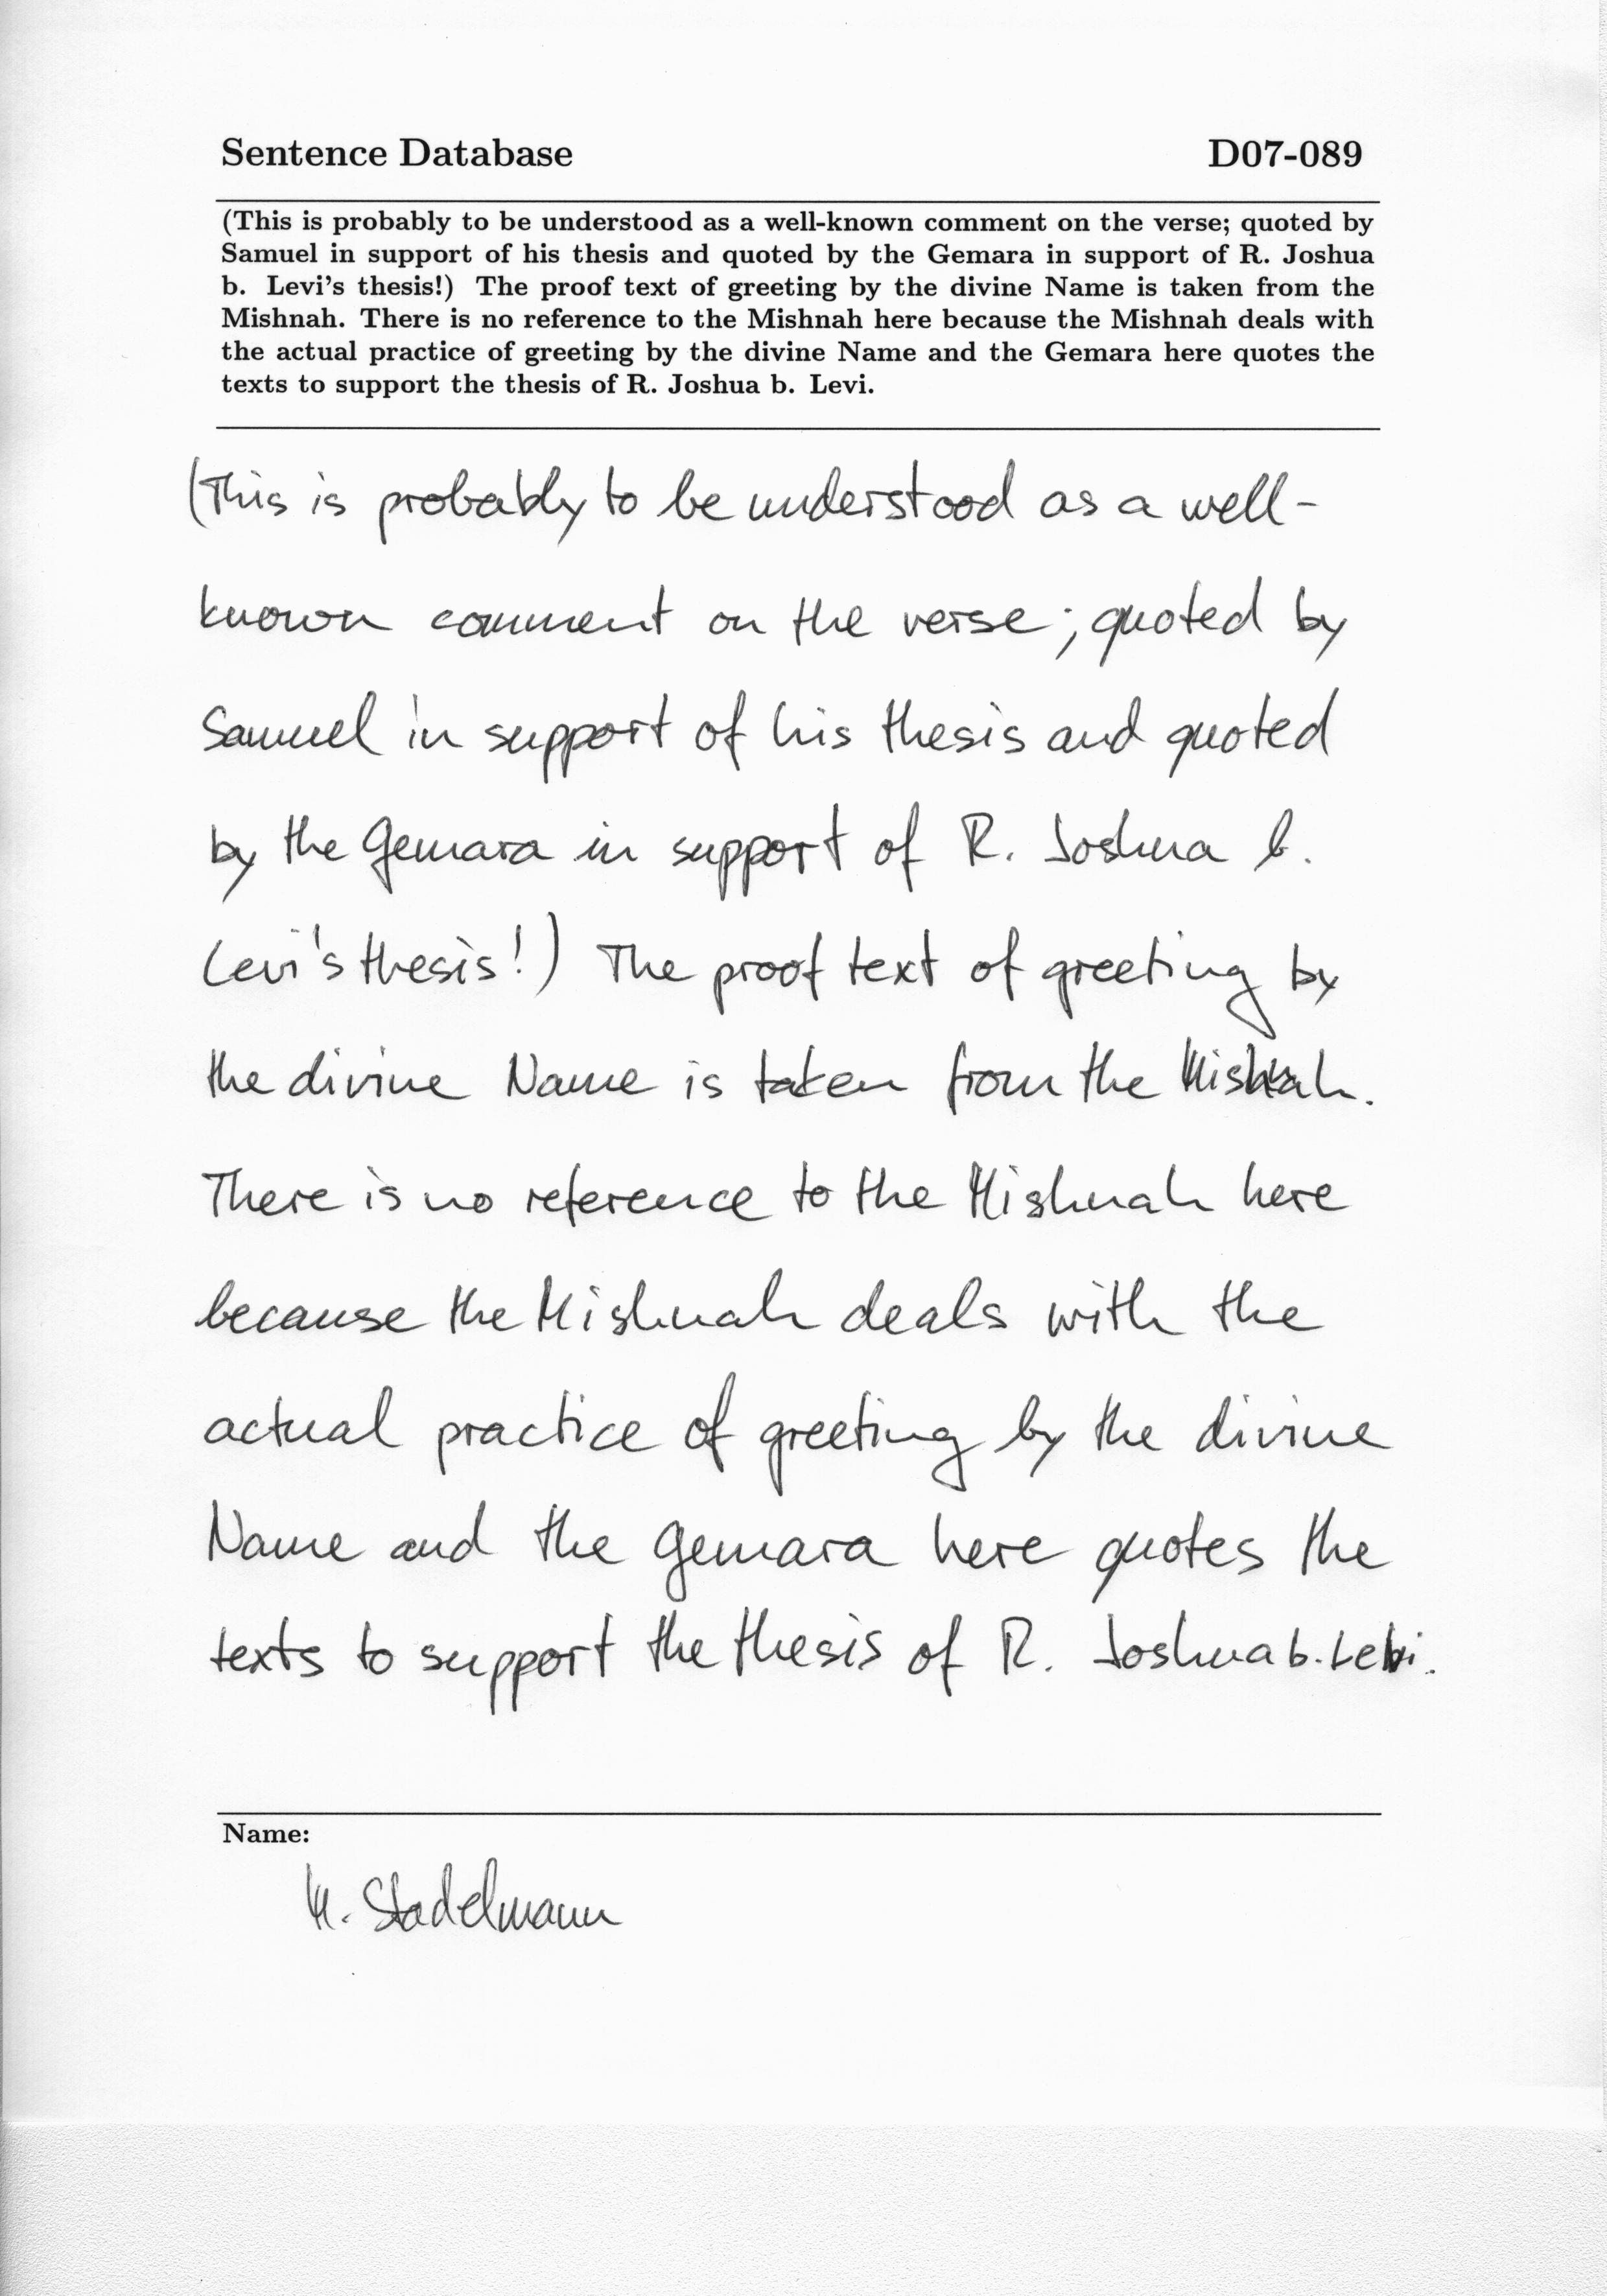 Sentence Database D07-089
(This is probably to be understood as a well-known comment on the verse; quoted by
Samuel in support of his thesis and quoted by the Gemara in support of R. Joshua
b. Levi's thesis!) The proof text of greeting by the divine Name is taken from the
Mishnah. There is no reference to the Mishnah here because the Mishnah deals with
the actual practice of greeting by the divine Name and the Gemara here quotes the
texts to support the thesis of R. Joshua b. Levi.
(This is probably to be understood as a well-
known comment on the verse; quoted by
Samuel in support of his thesis and quoted
by the Gemara in support of R. Joshua b.
Levi's thesis!) The proof text of greeting by
the divine Name is taken from the Mishnah.
There is no reference to the Mishnah here
because the Mishnah deals with the
actual practice of greeting by the divine
Name and the Gemara here quotes the
texts to support the thesis of R. Joshua b. Levi.
Name:
M. Stadelmann